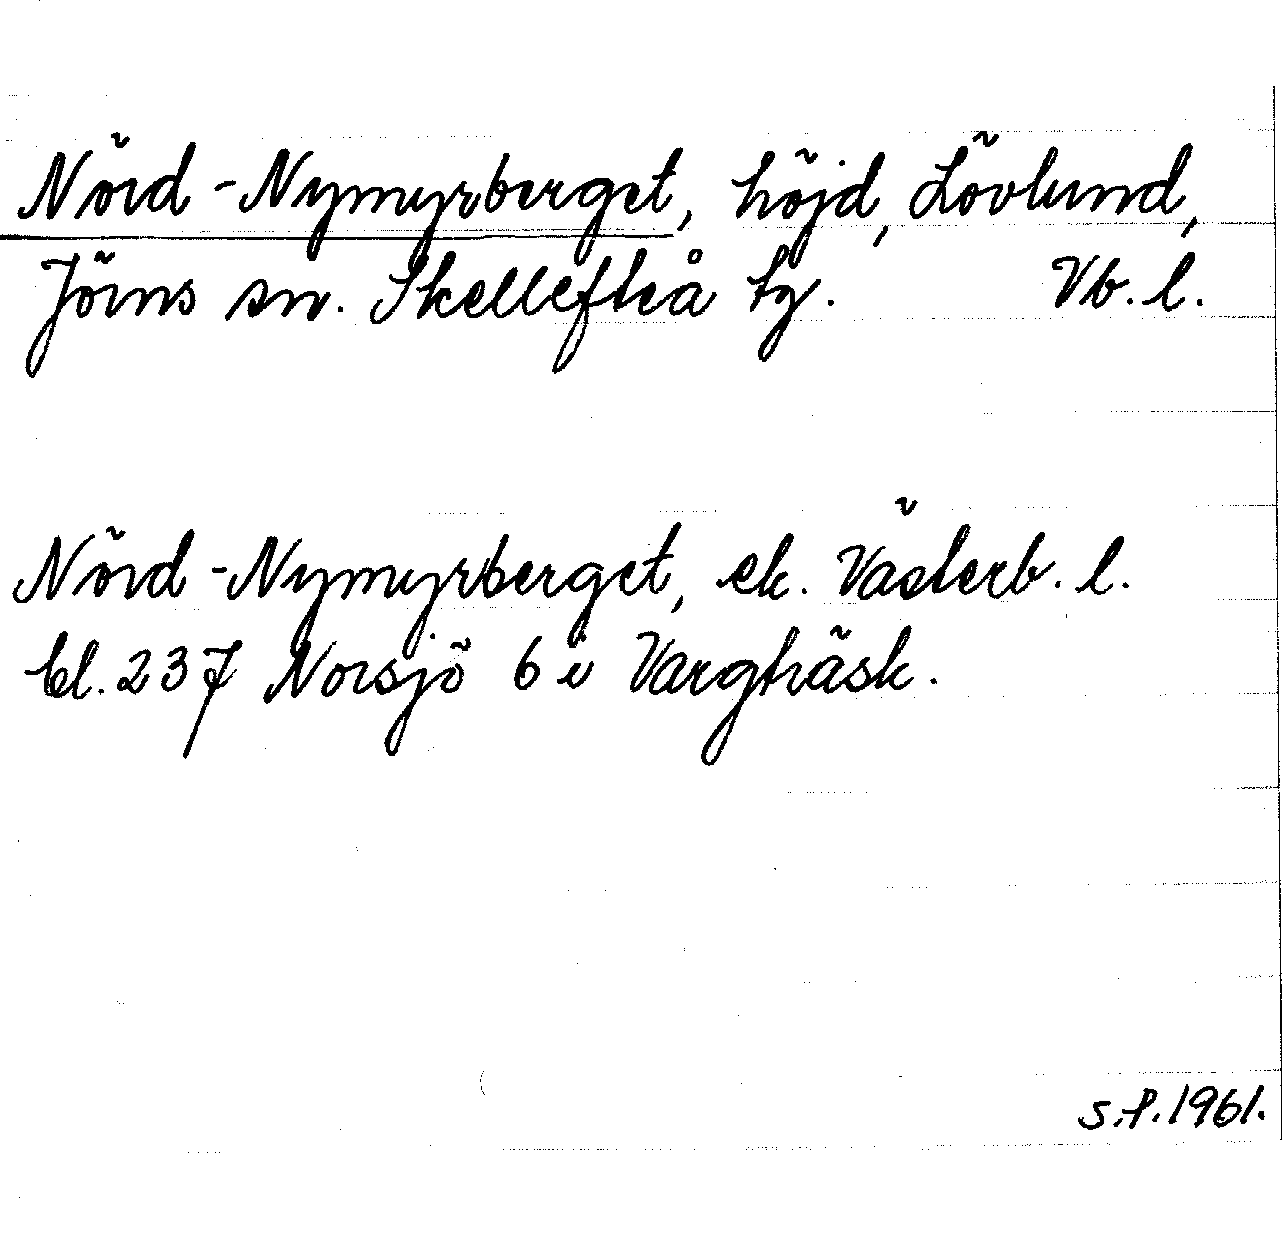 Nörd-Nymyrberget, höjd, Lövlund,
Jörns sn. Skellefteå tg. Vb. l.
Nörd-Nymyrberget, ek. Västerb. l.
bl. 237 Norsjö 6 i Vargträsk.
s.f. 1961.